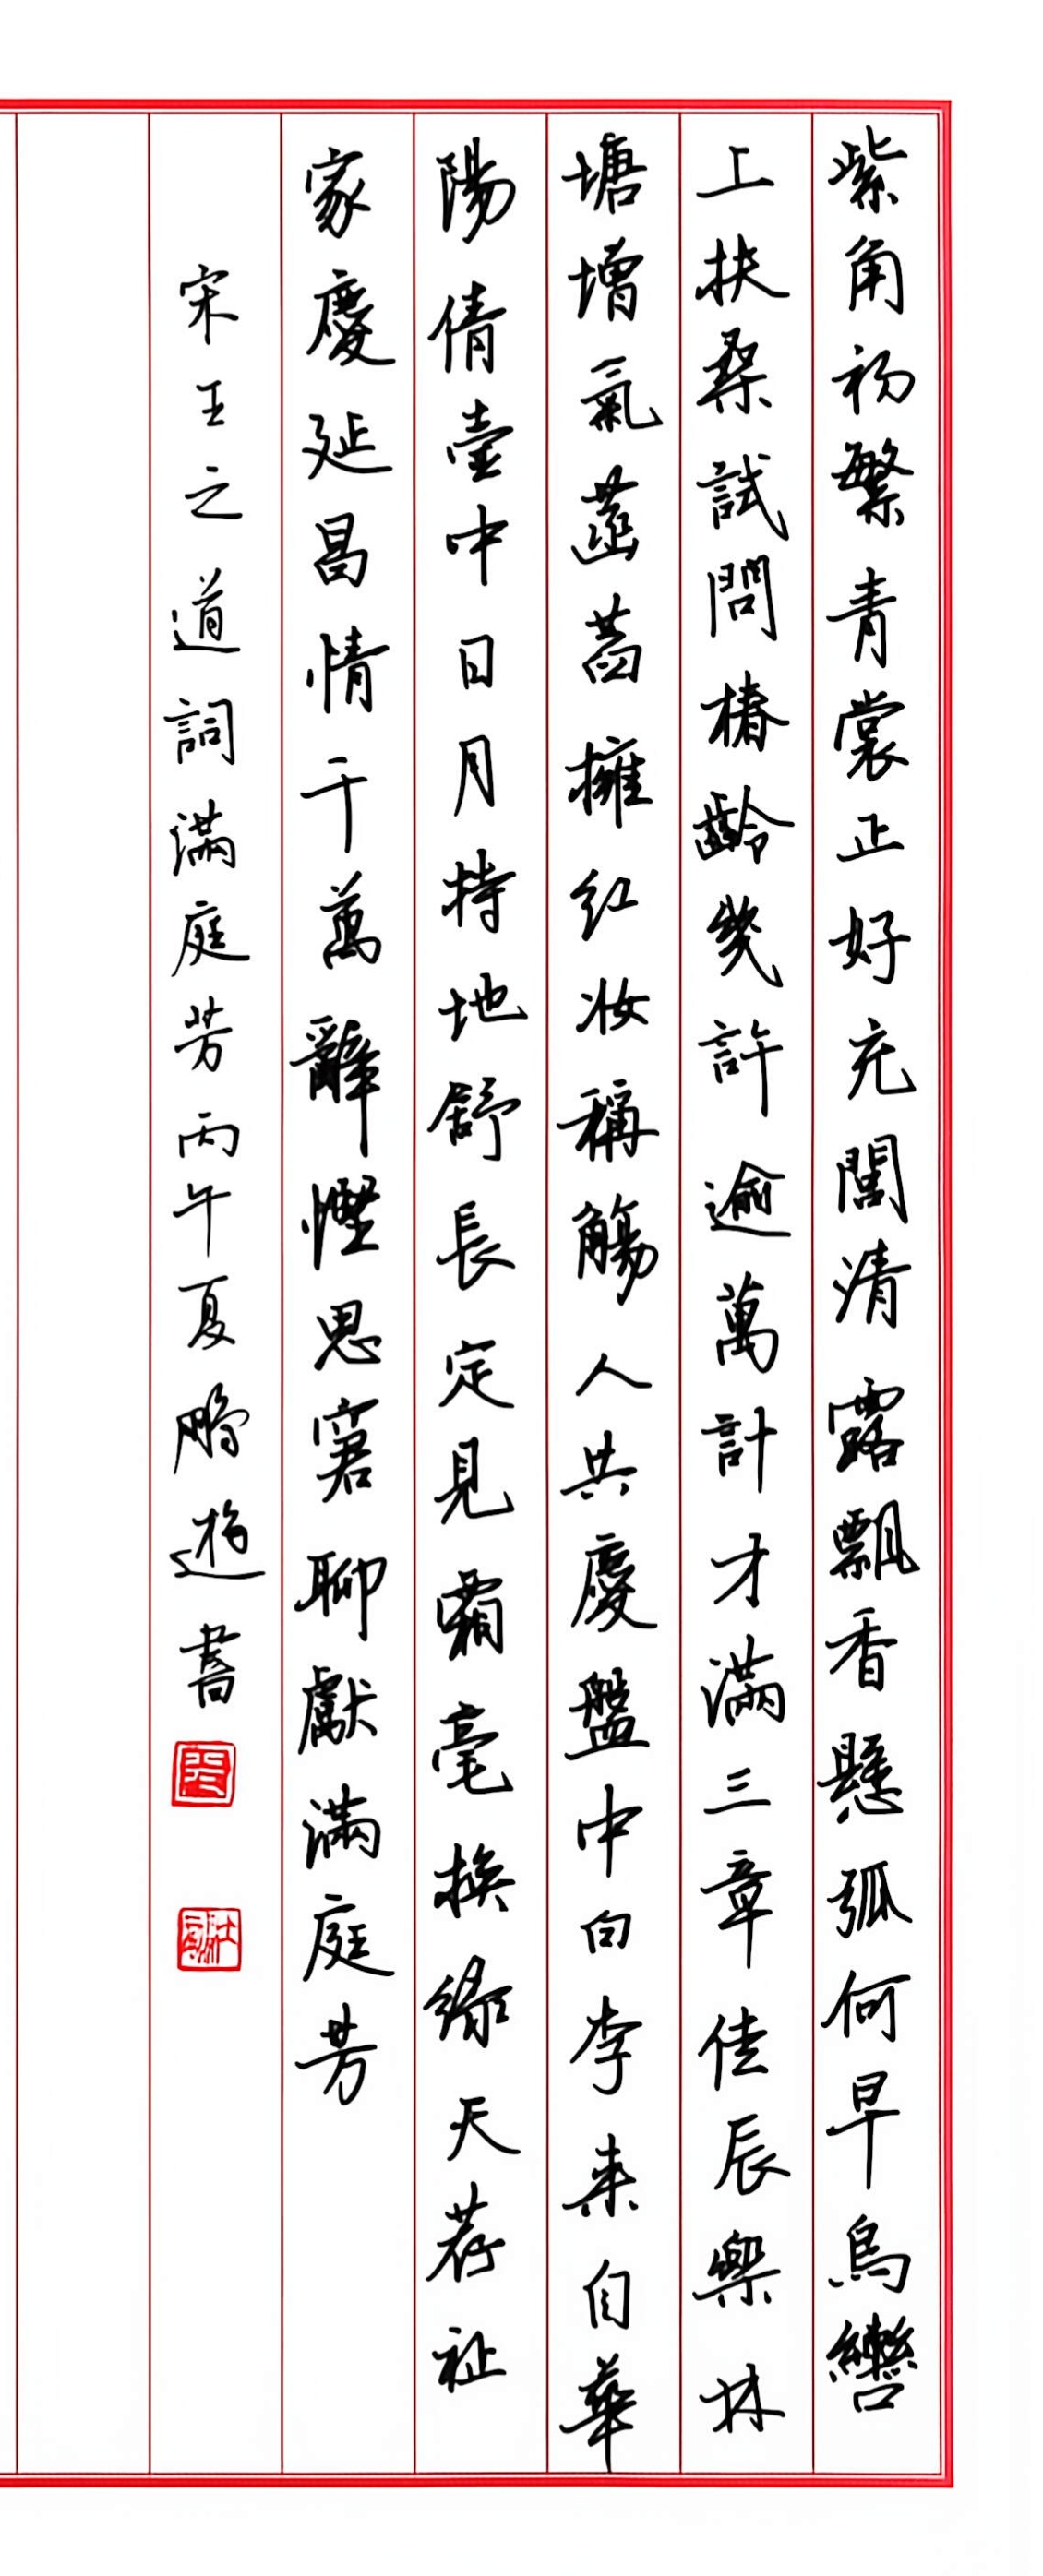 紫角初繁青裳正好充閭清露飄香懸弧何早烏轡
上扶桑試問椿齡幾許逾萬計才滿三章佳辰樂林
塘增氣菡萏擁紅妝稱觴人共慶盤中白李来自華
陽倩壺中日月特地舒長定見霜毫換緑天荐祉
家慶延昌情千萬辭慳思窘聊獻滿庭芳
宋王之道詞滿庭芳丙午夏鵬遊書